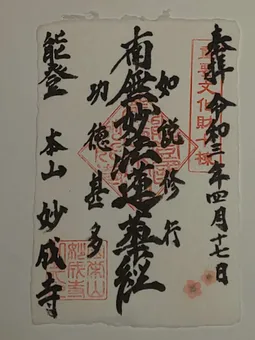 奉拝 令和三年四月十七日
重要文化財
如説修行
南無妙法蓮華経
功徳甚多
能登 本山 妙成寺